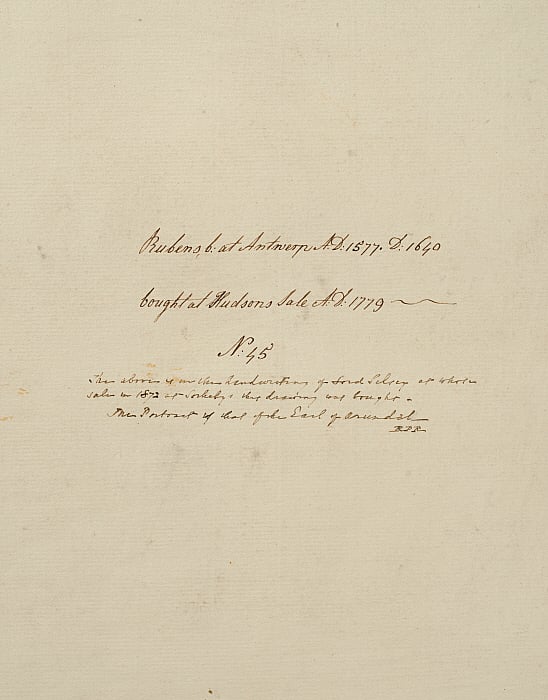 Rubens, b: at Antwerp A.D: 1577. D: 1640
bought at Hudsons Sale A:D: 1779
N: 45
The above is in the handwriting of Lord Selsey at whose
sale in 1872 at Sotheby's this drawing was bought.
The Portrait is that of the Earl of Arundel